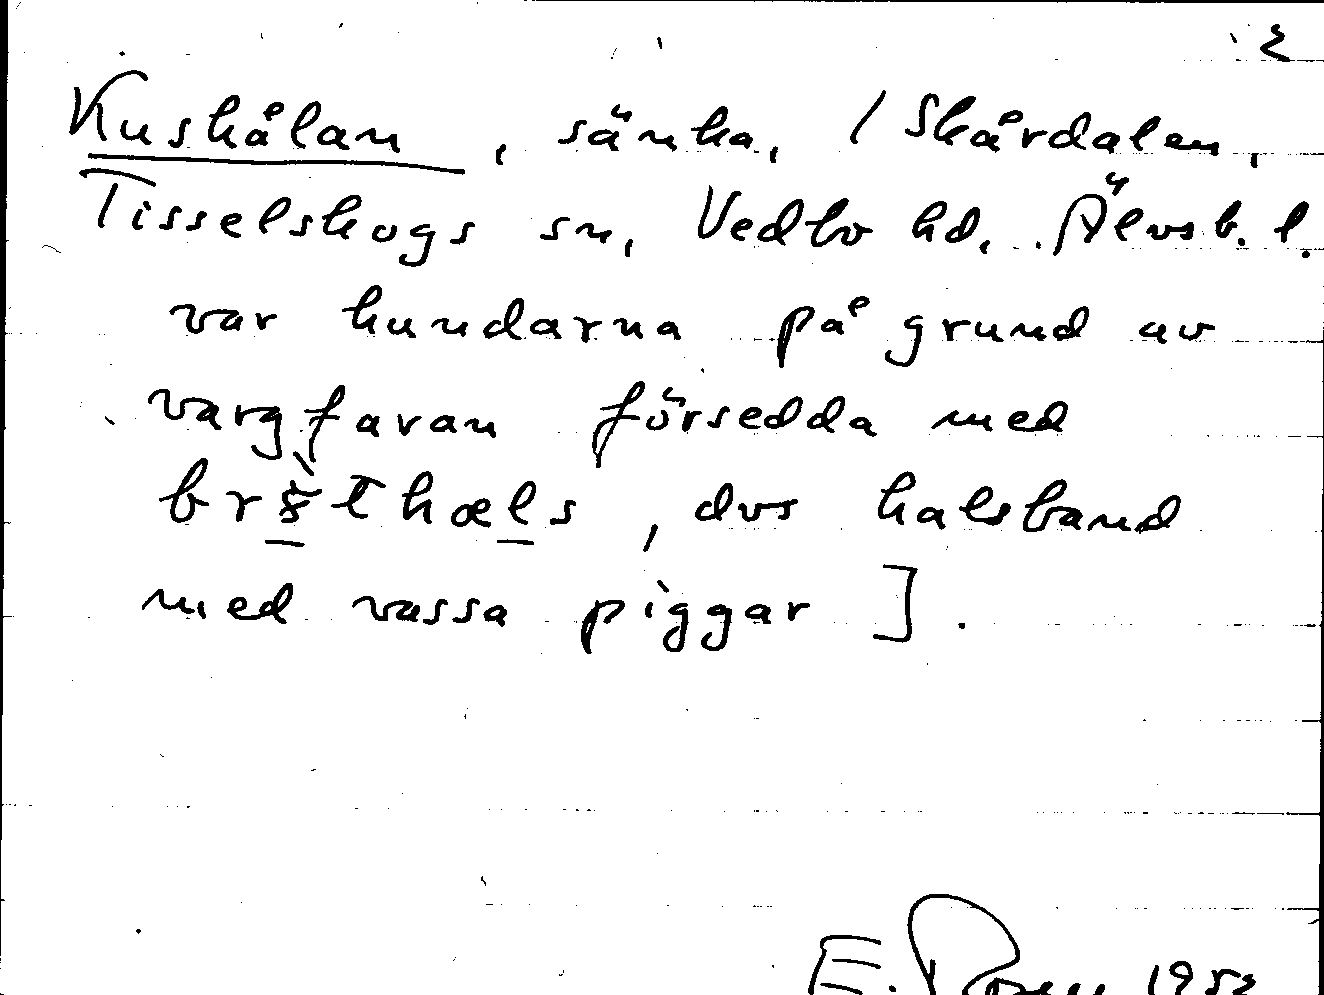 2
Kushålan, sänka, / Skårdalen,
Tisselskogs sn, Vedbo hd, Älvsb. l.
var hundarna på grund av
vargfaran försedda med
thæls, dvs halsband
med vassa piggar ].
E. 1952